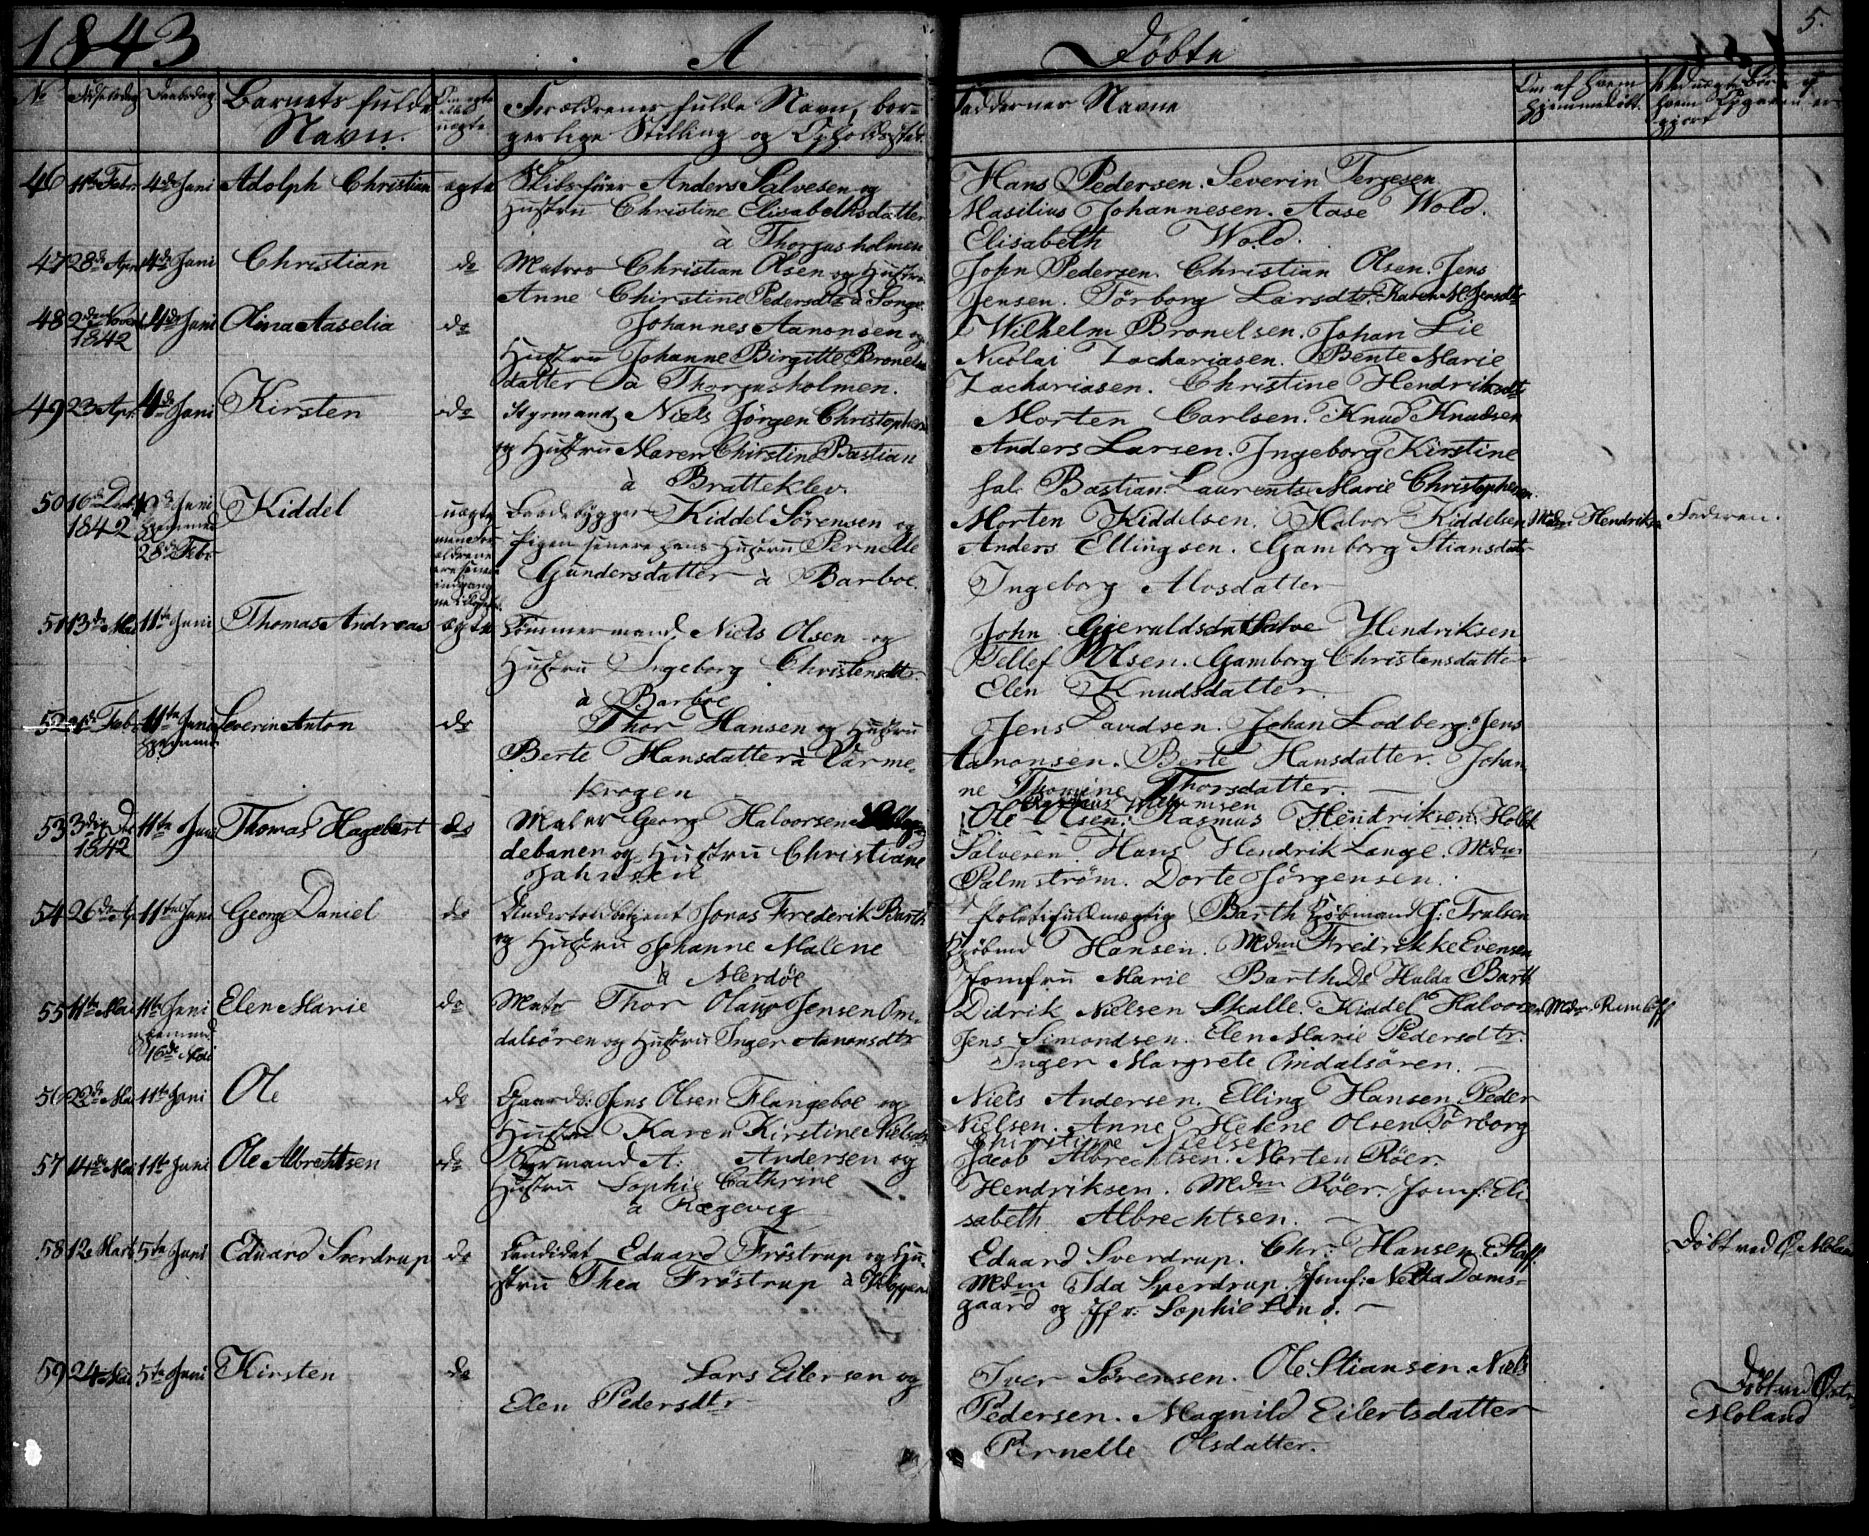 1843 A Døbte 5.
No Fødselsdag Daabsdag Barnets fulde Navn. Om ægte eller uægte Forældrenes fulde Navn, bor-
gerlige Stilling og Opholdssted. Faddernes Navne Om af hvem hjemmedøbt.
46 11te Febr. 4de Juni Adolph Christian ægte Skibsfører Anders Salvesen og
Hustru Christine Elisabethsdatter
à Thorjusholmen
Hans Pedersen. Severin Terjesen
Masilius Johannesen. Aase Wold.
Elisabeth Wold.
47 28de Apr. 4de Juni Christian do Matros Christian Olsen og Hustru
Anne Chirstine Pedersdtr à Songe
John Pedersen. Christian Olsen. Jens
Jensen. Törborg Larsdtr. Karen M. Jensdtr
48 2den Novbr 1842 4de Juni Olina Aaselia do Johannes Aanonsen og
Hustru Johanne Birgitte Bronels
datter à Thorjusholmen.
Wilhelm Bronelsen. Johan Lie
Nicolai Zachariasen. Bente Marie
Zachariasen. Christine Hendriksdtr
49 23 Apr. 4de Juni Kirsten do Styrmand Niels Jörgen Christophers
og Hustru Maren Chirstine Bastian
à Bratteklev.
Morten Carlsen. Knud Knudsen
Anders Larsen. Ingeborg Kirstine
sal. Bastian Laurentse Marie Christophersen.
50 16de Decbr 1842 Juni hjemme 28de Febr Kiddel uægte
Baadebygger Kiddel Sörensen og
Pigen senere hans Hustru Pernelle
Gundersdatter à Barboe.
Morten Kiddelsen. Halvor Kiddelsen
Anders Ellingsen. Gamborg Stiansdatr
Ingeborg Alosdatter
Mdm Hendriksen Faderen.
51 13de Mai 11te Juni Thomas Andreas ægte Tömmermand Niels Olsen og
Hustru Ingeborg Christensdtr
à Barboe
John Gjeruldsen Salve Hendriksen
Tellef Olsen. Gamborg Christensdatter
Elen Knudsdatter.
52 Feb. 11te Juni hjemme Severin Anton do Thor Hansen og Hustru
Berte Hansdatter à Varme-
krogen
Jens Davidsen. Johan Lodberg. Jens
Aanonsen. Berte Hansdatter. Johan
ne Thomine Thorsdatter.
53 3die Dec 1842 11te Juni Thomas Hagebart do Maler Georg Halvorsen
debanen og Hustru Christiane
Jahnsen
Ole Olsen. Rasmus Hendriksen. Holst
Salvesen. Hans Hendrik Lange. Mdm
Palmström. Dorte Jörgensen.
54 26de Ap. 11te Juni George Daniel do Undertoldbetjent Jonas Frederik Barth
og Hustru Johanne Malene
à Merdöe
Politifuldmægtig Barth Kjöbmand J: Tralsen
Kjöbmd Hansen. Mdm Fredrikke Evensen
Jomfru Marie Barth. Do Hulda Barth
55 11te Mai 11te Juni hjemmed 16de Mai Elen Marie do Matr Thor Olaus Jensen Om-
dalsören og Hustru Inger Aanonsdtr
Didrik Nielsen Skalle. Kiddel Halvorsen
Jens Simondsen. Elen Marie Pedersdtr.
Inger Margrete Omdalsören.
Mdm
56 22de Mai 11te Juni Ole do Gaardbr: Jens Olsen Flangeboe og
Hustru Karen Kirstine Nielsdtr
Niels Andersen. Elling Hansen. Peder
Nielsen. Anne Helene Olsen Törborg
Chirstine Nielsen
57 14de Mai 11te Juni Ole Albrechtsen do Styrmand A: Andersen og
Hustru Sophie Cathrine
à Rægevig
Jacob Albrechtsen. Morten Röer.
Hendriksen. Mdm Röer. Jomf: Eli-
sabeth Albrechtsen.
58 12e Marts 5te Juni Eduard Sverdrup do Candidat Eduard Fröstrup og Hu-
stru Thea Fröstrup à
Eduard Sverdrup. Chr: Hansen. Staff.
Mdm Ida Sverdrup. Jomf: Netta Dams-
gaard og Jfr: Sophie Lund.
Döbt ved Ø. Moland
59 24 Mai 5te Juni Kirsten do Lars Eilersen og
Elen Pedersdtr
Iver Sörensen. Ole Stiansen. Niels
Pedersen. Magnild Eilertsdatter
Pernelle Olsdatter.
Döbt ved Østre
Moland